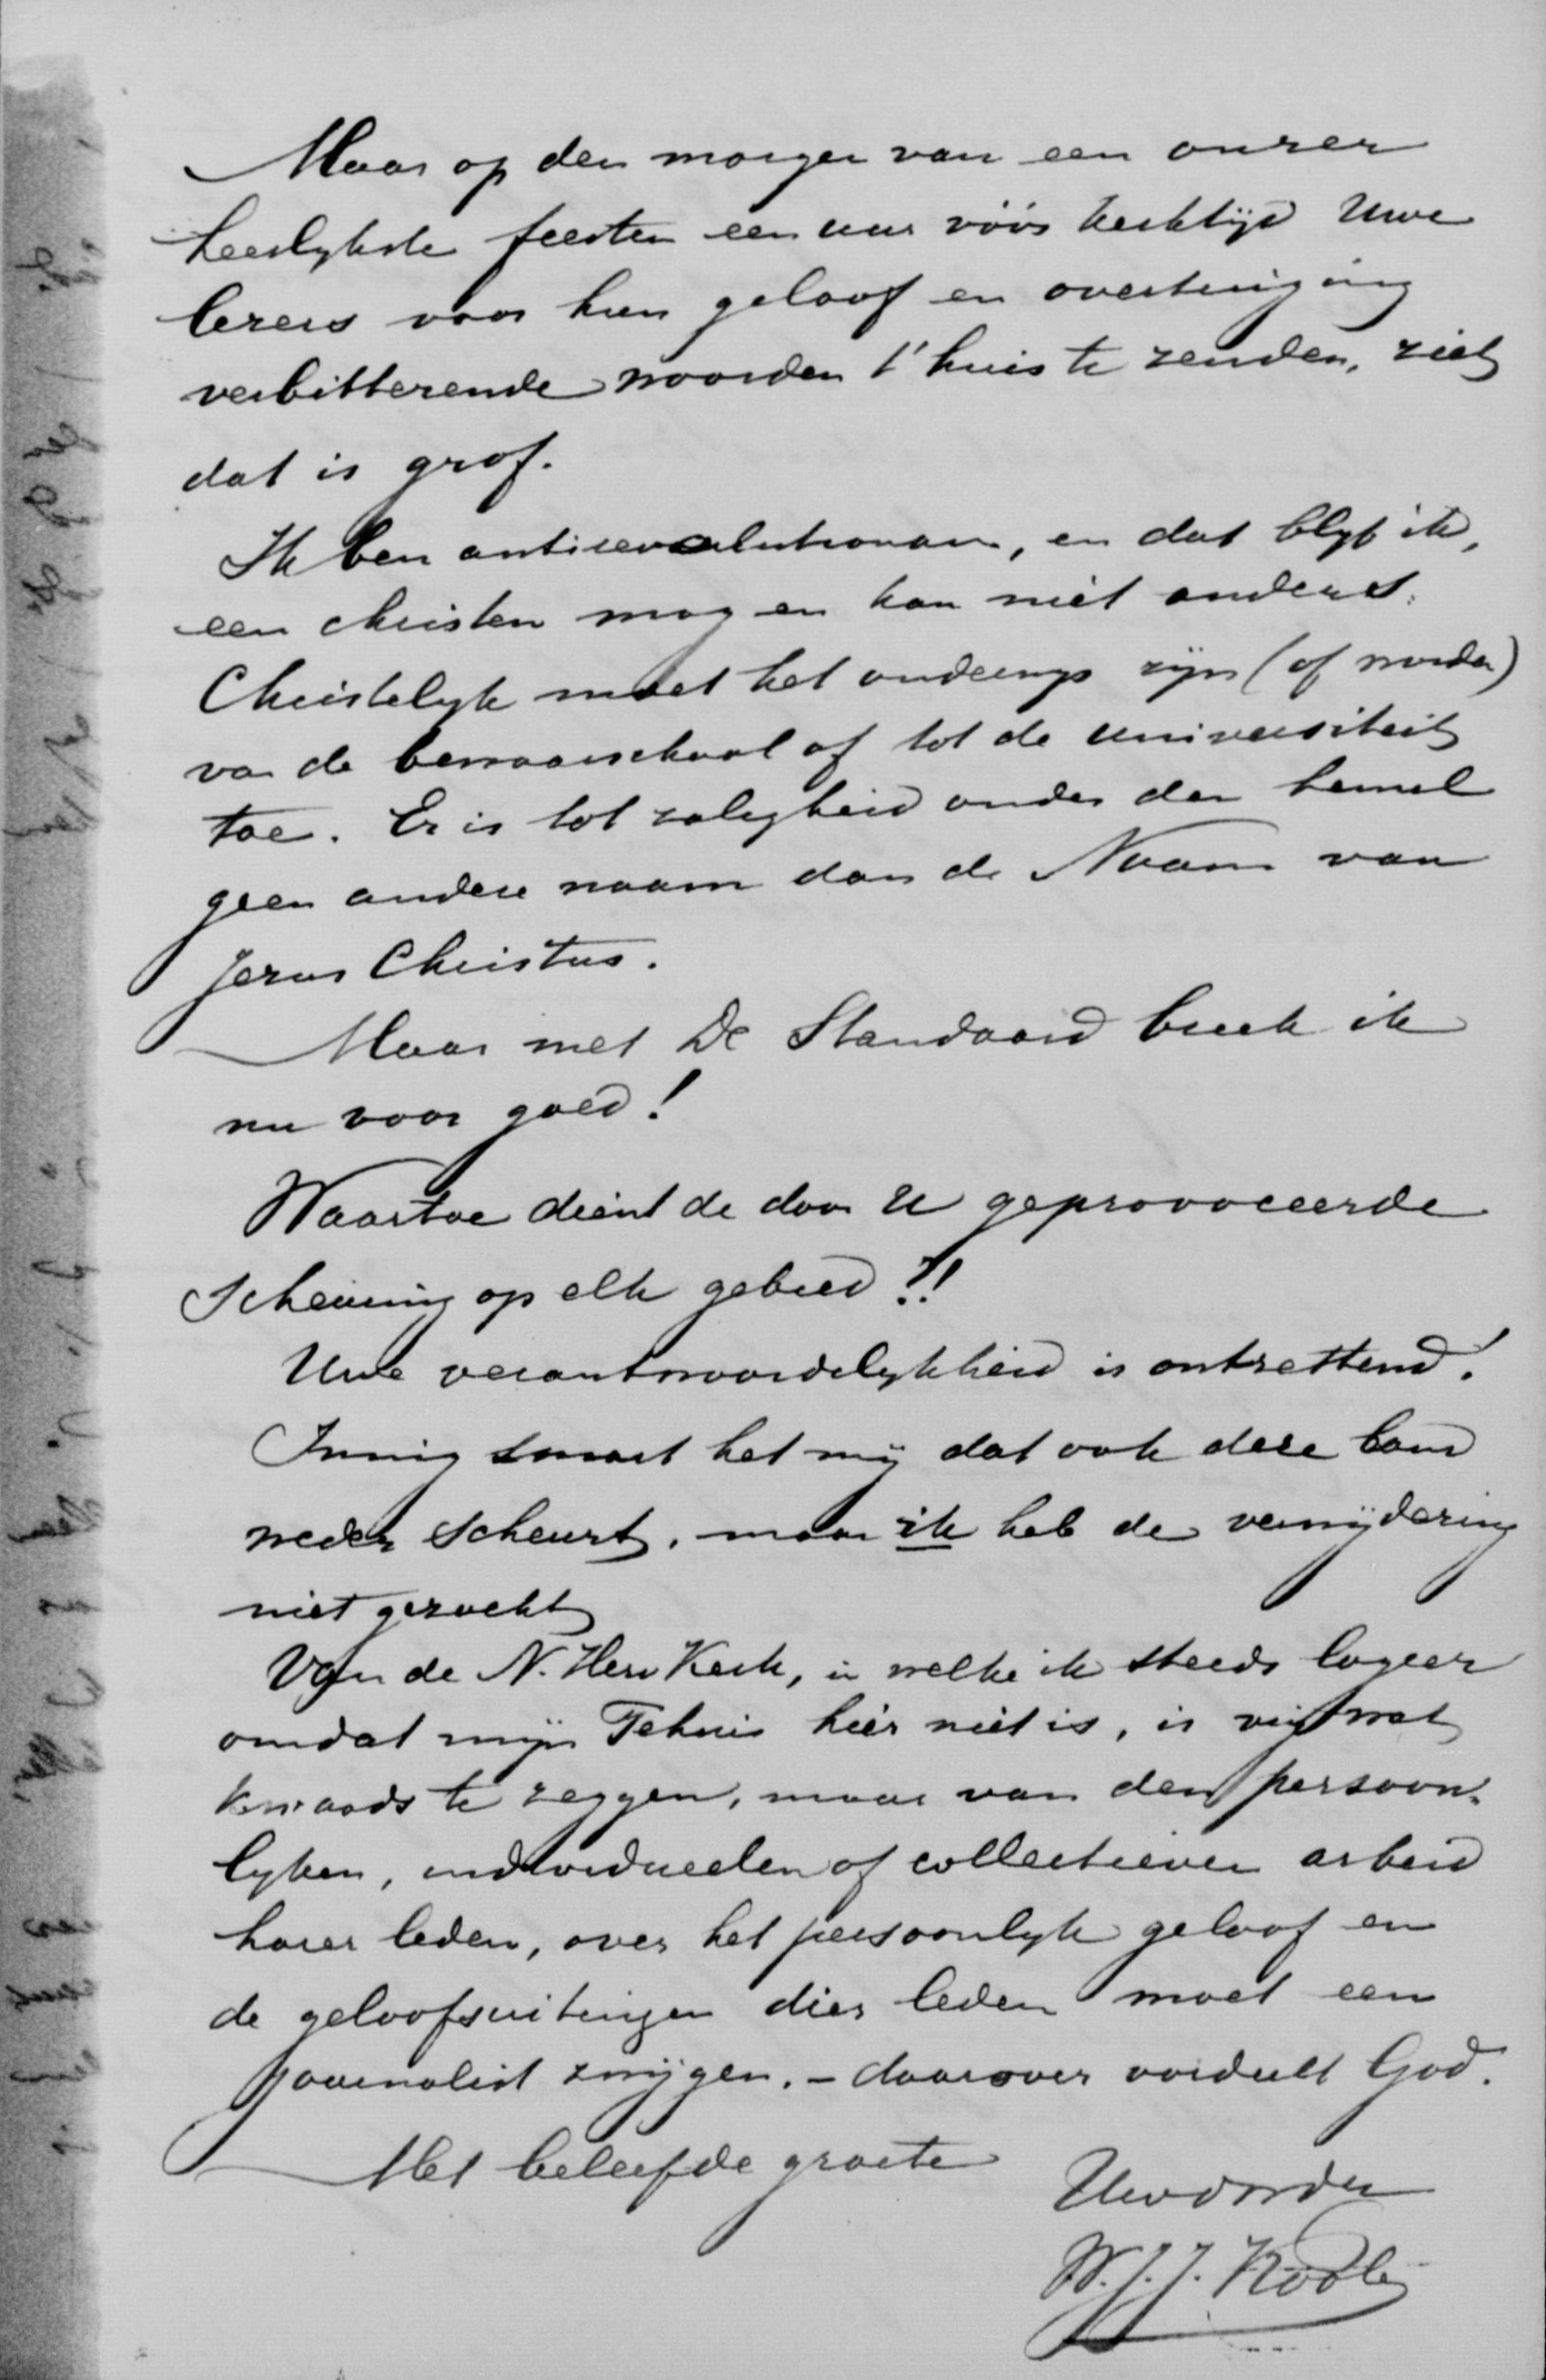 Maar op den morgen van een onzer
heerlykste feesten een uur vóór kerktijd Uwe
lezers voor hun geloof en overtuiging
verbitterende woorden t'huis te zenden, ziet
dat is grof.
Ik ben antirevolutionair, en dat blyf ik,
een christen mag en kan niet anders.
Christelyk moet het onderwys zijn (of worden)
van de bewaarschool af tot de universiteit
toe. Er is tot zaligheid onder den hemel
geen andere naam dan de Naam van
Jezus Christus.
Maar met De Standaard breek ik
nu voor goed!
Waartoe dient de door U geprovoceerde
scheuring op elk gebied?!
Uwe verantwoordelykheid is ontzettend!
Innig smart het mij dat ook deze band
weder scheurt, maar ik heb de verwijdering
niet gezocht
Van de N. Herv Kerk, in welke ik steeds logeer
omdat mijn Tehuis hier niet is, is vrij wat
kwaads te zeggen, maar van den persoon-
lyken, individueelen of collectieven arbeid
harer leden, over het persoonlyk geloof en
de geloofsuitingen dier leden moet een
journalist zwijgen. - daarover oordeelt God.
Met beleefde groete
Uwdwdr
W. J. J.